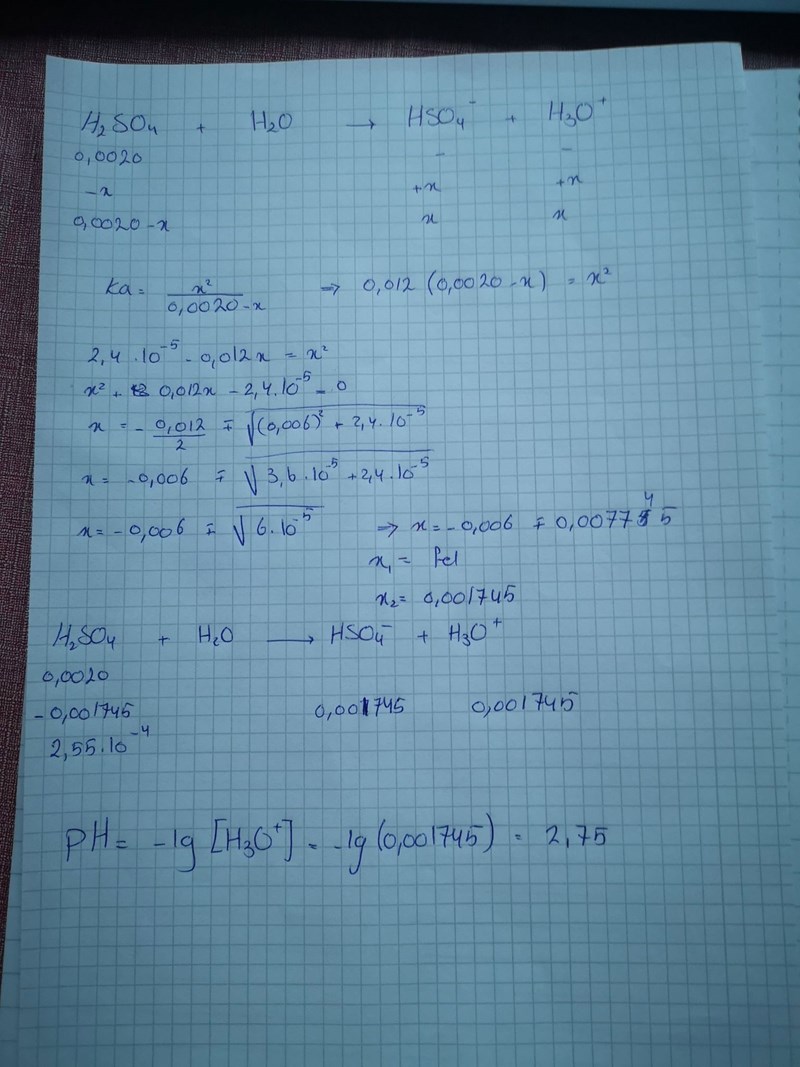 H₂SO₄ + H₂O → HSO₄⁻ + H₃O⁺
0,0020 - -
-x +x +x
0,0020-x x x
Ka = x²/(0,0020-x) → 0,012 (0,0020-x) = x²
2,4·10⁻⁵ - 0,012x = x²
x² + 0,012x - 2,4·10⁻⁵ = 0
x = - 0,012/2 ∓ √((0,006)² + 2,4·10⁻⁵)
x = -0,006 ∓ √(3,6·10⁻⁵ + 2,4·10⁻⁵)
x = -0,006 ∓ √(6·10⁻⁵) → x = -0,006 ∓ 0,007745
x₁ = fel
x₂ = 0,001745
H₂SO₄ + H₂O → HSO₄⁻ + H₃O⁺
0,0020
-0,001745 0,001745 0,001745
2,55·10⁻⁴
PH = -lg [H₃O⁺] = -lg (0,001745) = 2,75